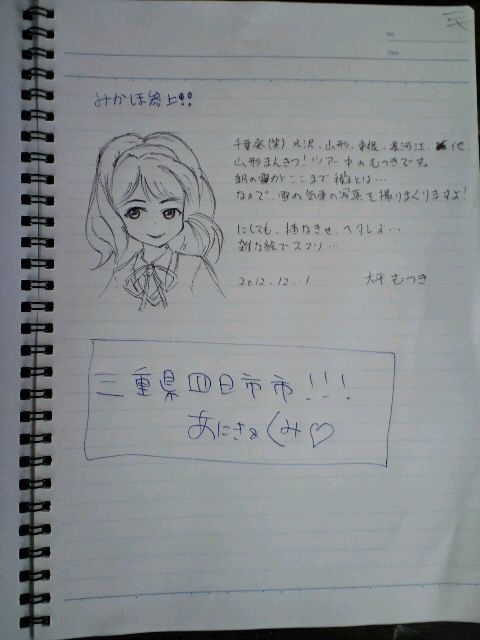 No.
Date
みかほ参上!!
千葉発(笑) 米沢、山形、東根、寒河江、他
山形まんきつ!ツアー中のむつきです。
朝の雪がここまで積とは…
なので、雪の気車の写真も撮りまくりますよ!
にしても、描なきせ、ヘリレス…
雑な絵でスマソ…
2012.12.1 大平むつき
三重県四日市市!!!
あにき&くみ♡